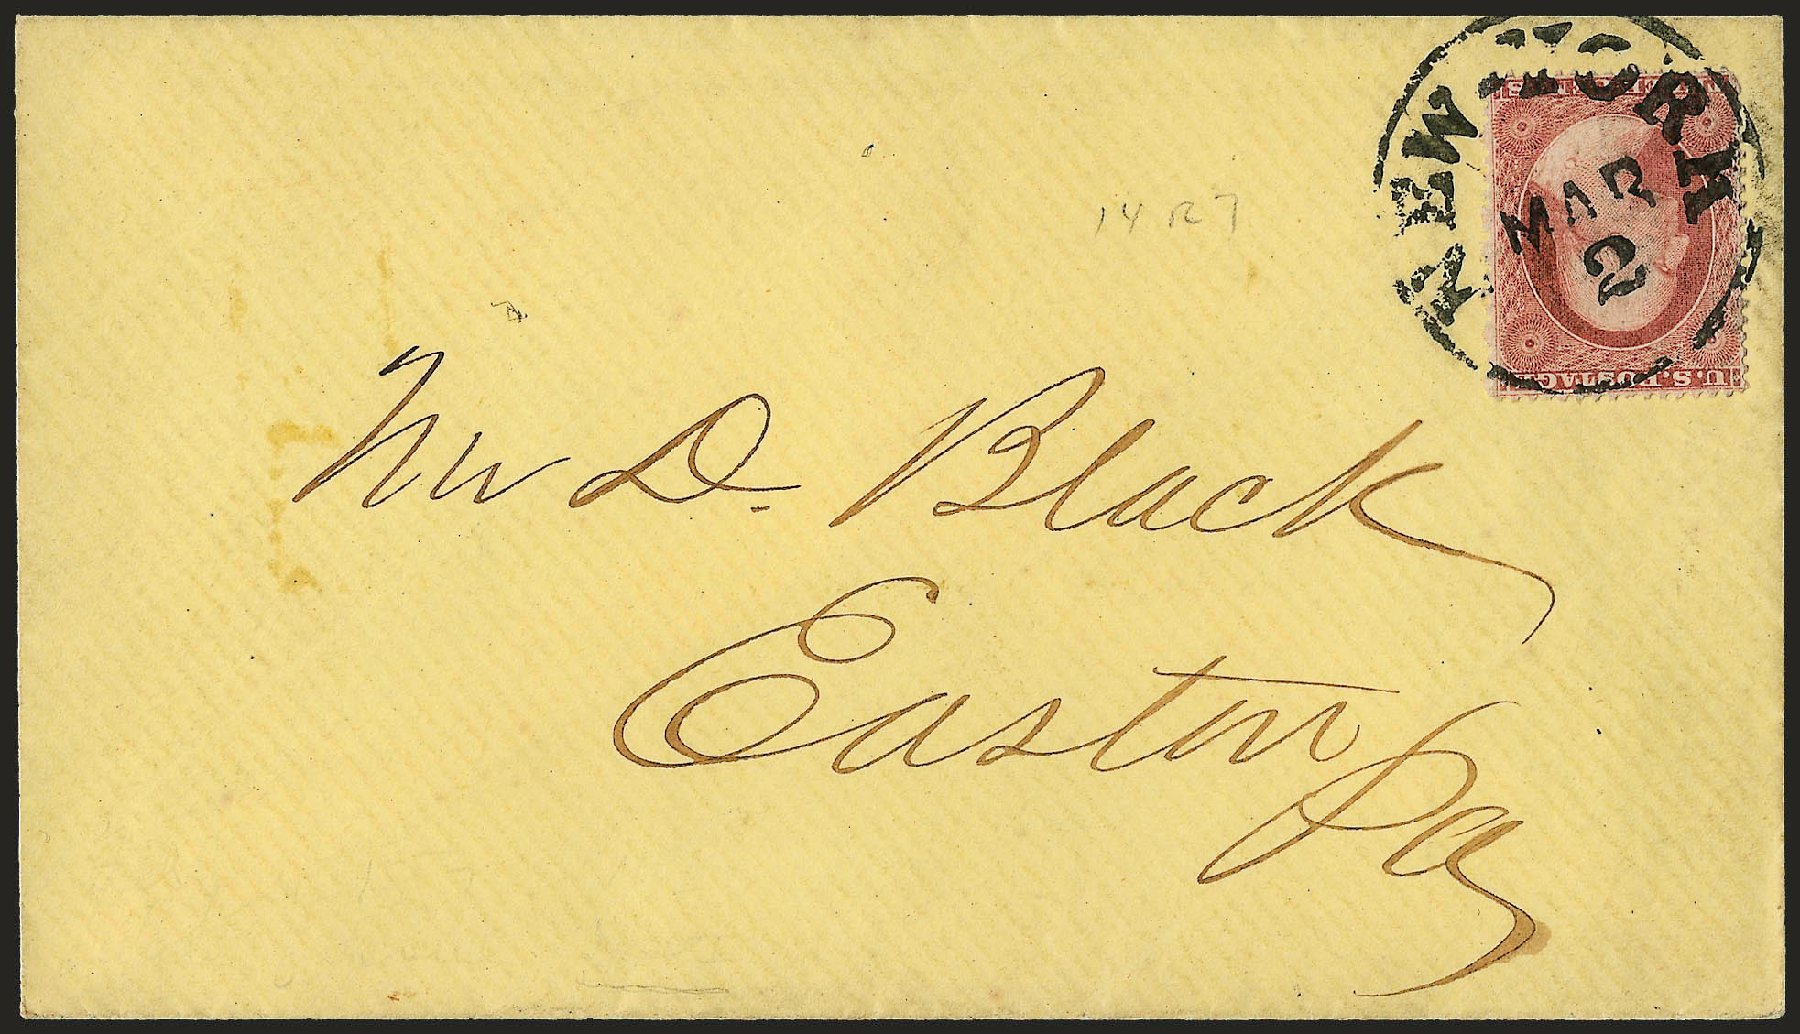 NEW-YORK
MAR
2
U.S. POSTAGE
14 R 7
Mr D. Black
Easton
Pa